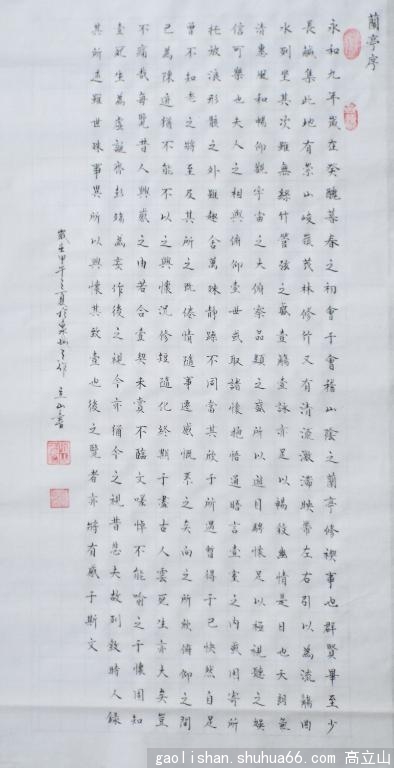 蘭亭序
永和九年歲在癸醜暮春之初會于會稽山陰之蘭亭修禊事也群賢畢至少
長鹹集此地有崇山峻嶺茂林修竹又有清流激湍映帶左右引以為流觴曲
水列坐其次雖無絲竹管弦之盛壹觴壹詠亦足以暢敘幽情是日也天朗氣
清惠風和暢仰觀宇宙之大俯察品類之盛所以遊目騁懷足以極視聽之娛
信可樂也夫人之相與俯仰壹世或取諸懷抱悟道晤言壹室之內或因寄所
托放浪形骸之外雖趣舍萬殊靜躁不同當其欣于所遇暫得于己快然自足
曾不知老之將至及其所之既倦情隨事遷感慨系之矣向之所欣俯仰之間
已為陳迹猶不能不以之興懷況修短隨化終期于盡古人雲死生亦大矣豈
不痛哉每覽昔人興感之由若合壹契未嘗不臨文嗟悼不能喻之于懷固知
壹死生為虛誕齊彭殤為妄作後之視今亦猶今之視昔悲夫故列敘時人錄
其所述雖世殊事異所以興懷其致壹也後之覽者亦將有感于斯文
歲在甲午之夏於泉城 立山書
gaolishan.shuhua66.com 高立山